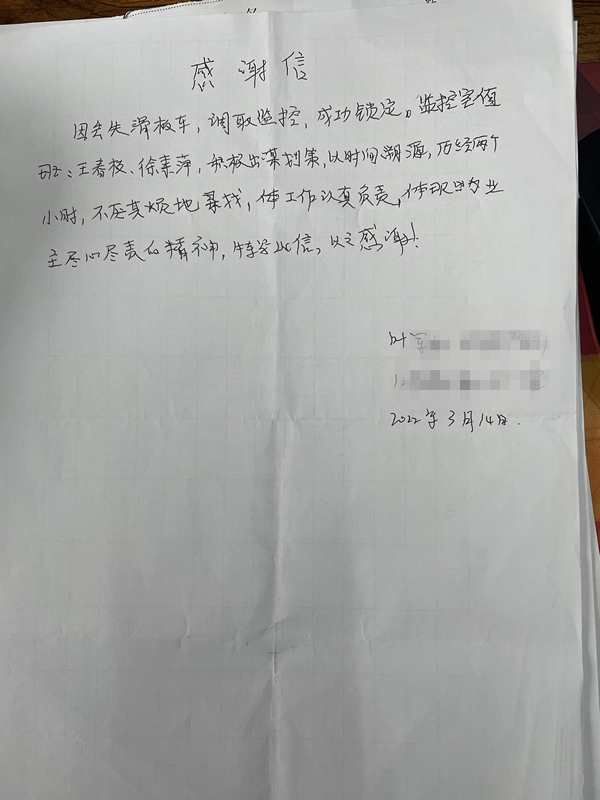 感谢信
因丢失滑板车，调取监控，成功锁定。监控室值
班：王春枝、徐素萍，积极出谋划策，以时间溯源，历经两个
小时，不厌其烦地寻找，使工作认真负责，体现出为业
主尽心尽责的精神，特写此信，以之感谢！
叶
12
2022年3月14日.